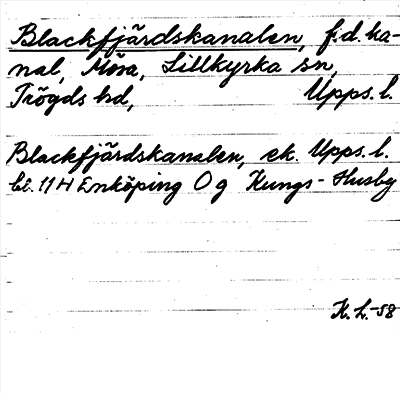 Blackfjärdskanalen, f.d. ka-
nal, Mosa, Lillkyrka sn,
Trögds hd, Upps. l.
Blackfjärdskanalen, ek. Upps. l.
bl. 11 H Enköping O g Kungs-Husby
K. L. -58